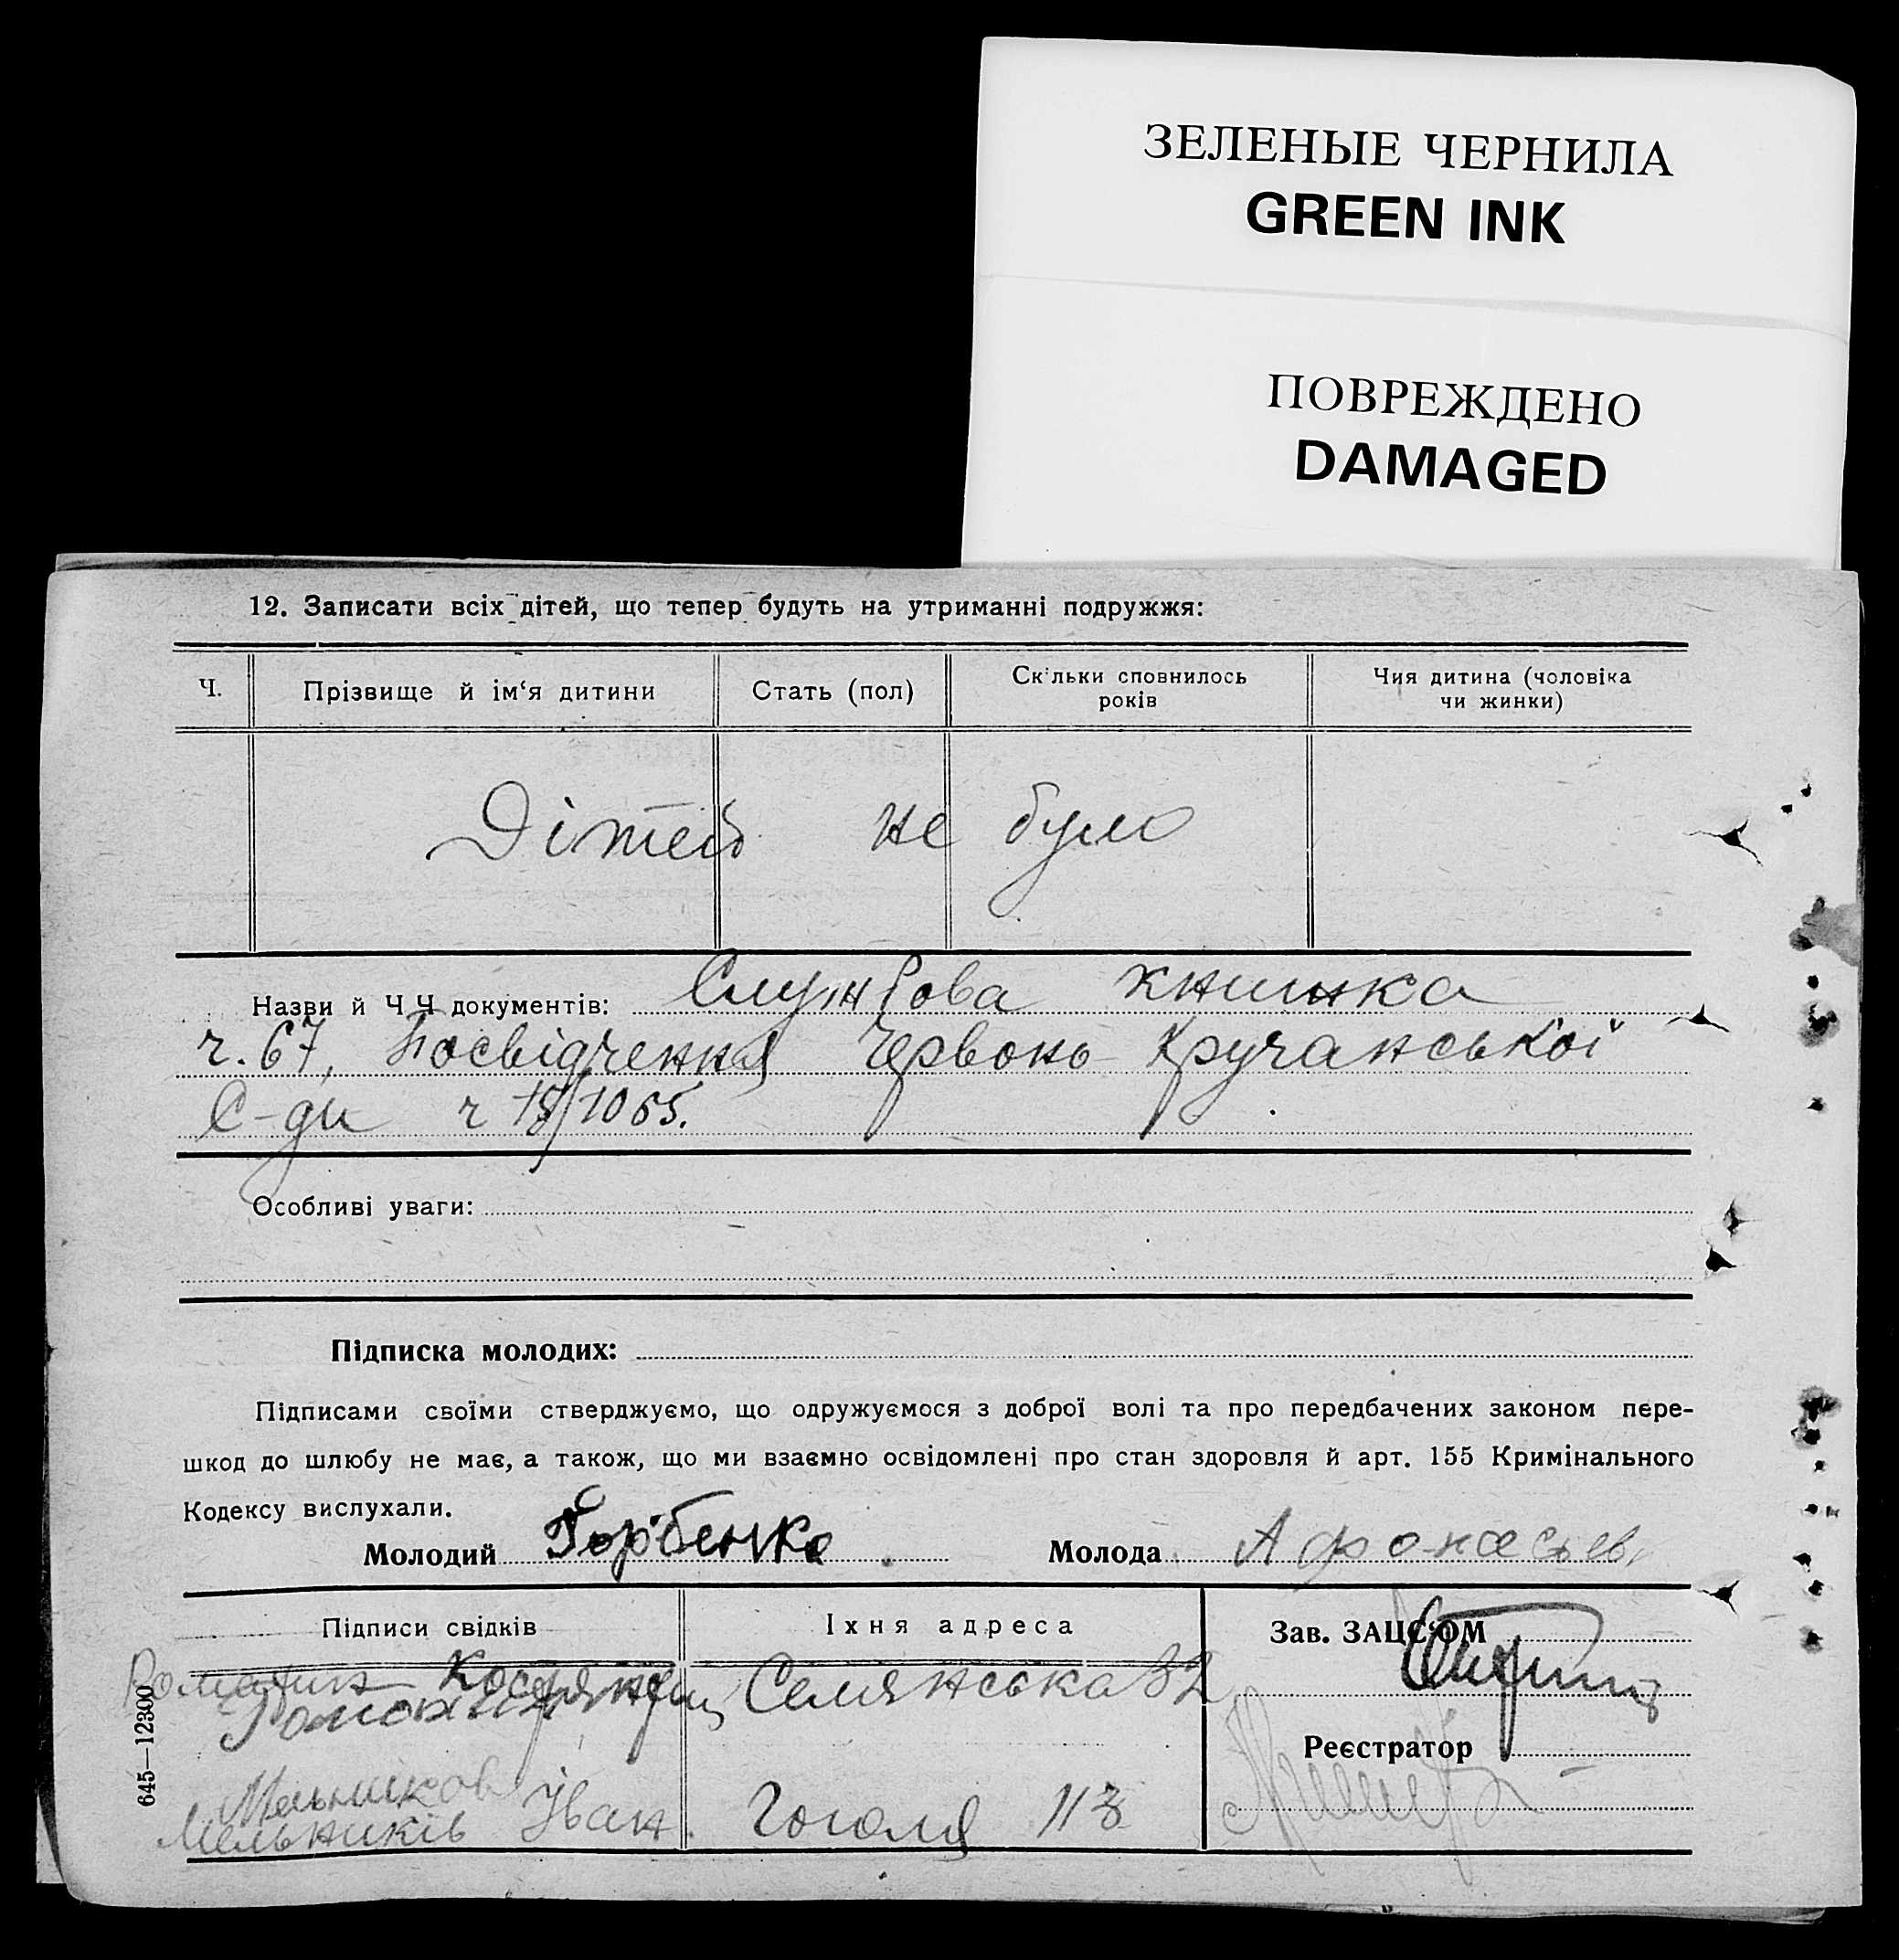 ЗЕЛЕНЫЕ ЧЕРНИЛА
GREEN INK
ПОВРЕЖДЕНО
DAMAGED
12. Записати всіх дітей, що тепер будуть на утриманні подружжя:
Ч. Прізвище й ім‘я дитини Стать (пол) Скільки сповнилось років Чия дитина (чоловіка чи жинки)
Дітей не було
Назви й Ч Ч документів: Службова книжка
ч. 67, Посвідчення Червоно Кручанської
С-ди ч 15/1065.
Особливі уваги:
Підписка молодих:
Підписами своїми стверджуємо, що одружуємося з доброї волі та про передбачених законом пере-
шкод до шлюбу не має, а також, що ми взаємно освідомлені про стан здоровля й арт. 155 Кримінального
Кодексу вислухали.
Молодий Горбенко Молода Афонасьев
Підписи свідків Їхня адреса Зав. ЗАЦС‘ОМ
Семянська 32
Реєстратор
Мельников
Мельників Іван. Гоголя 113
645—12300